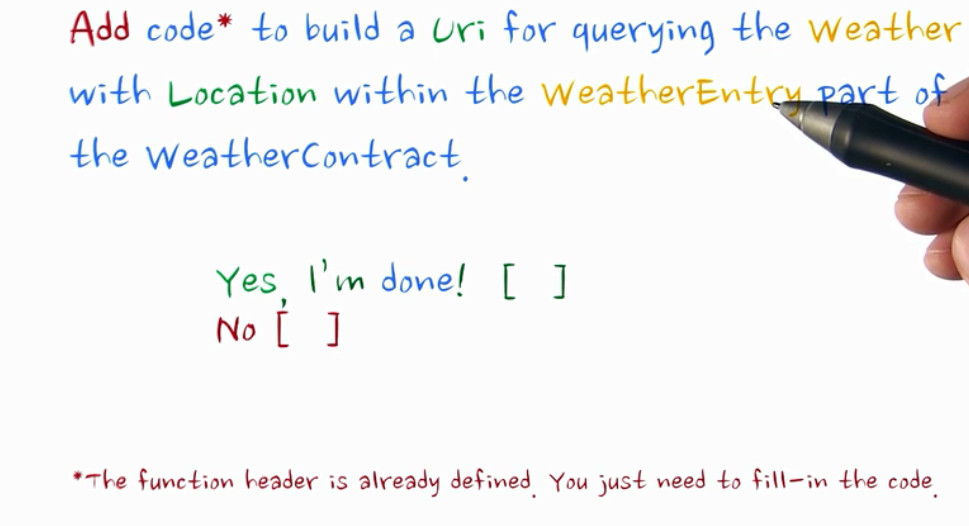 Add code* to build a Uri for querying the Weather
with Location within the WeatherEntry part of
the WeatherContract.
Yes, I'm done! [ ]
No [ ]
*The function header is already defined. You just need to fill-in the code.